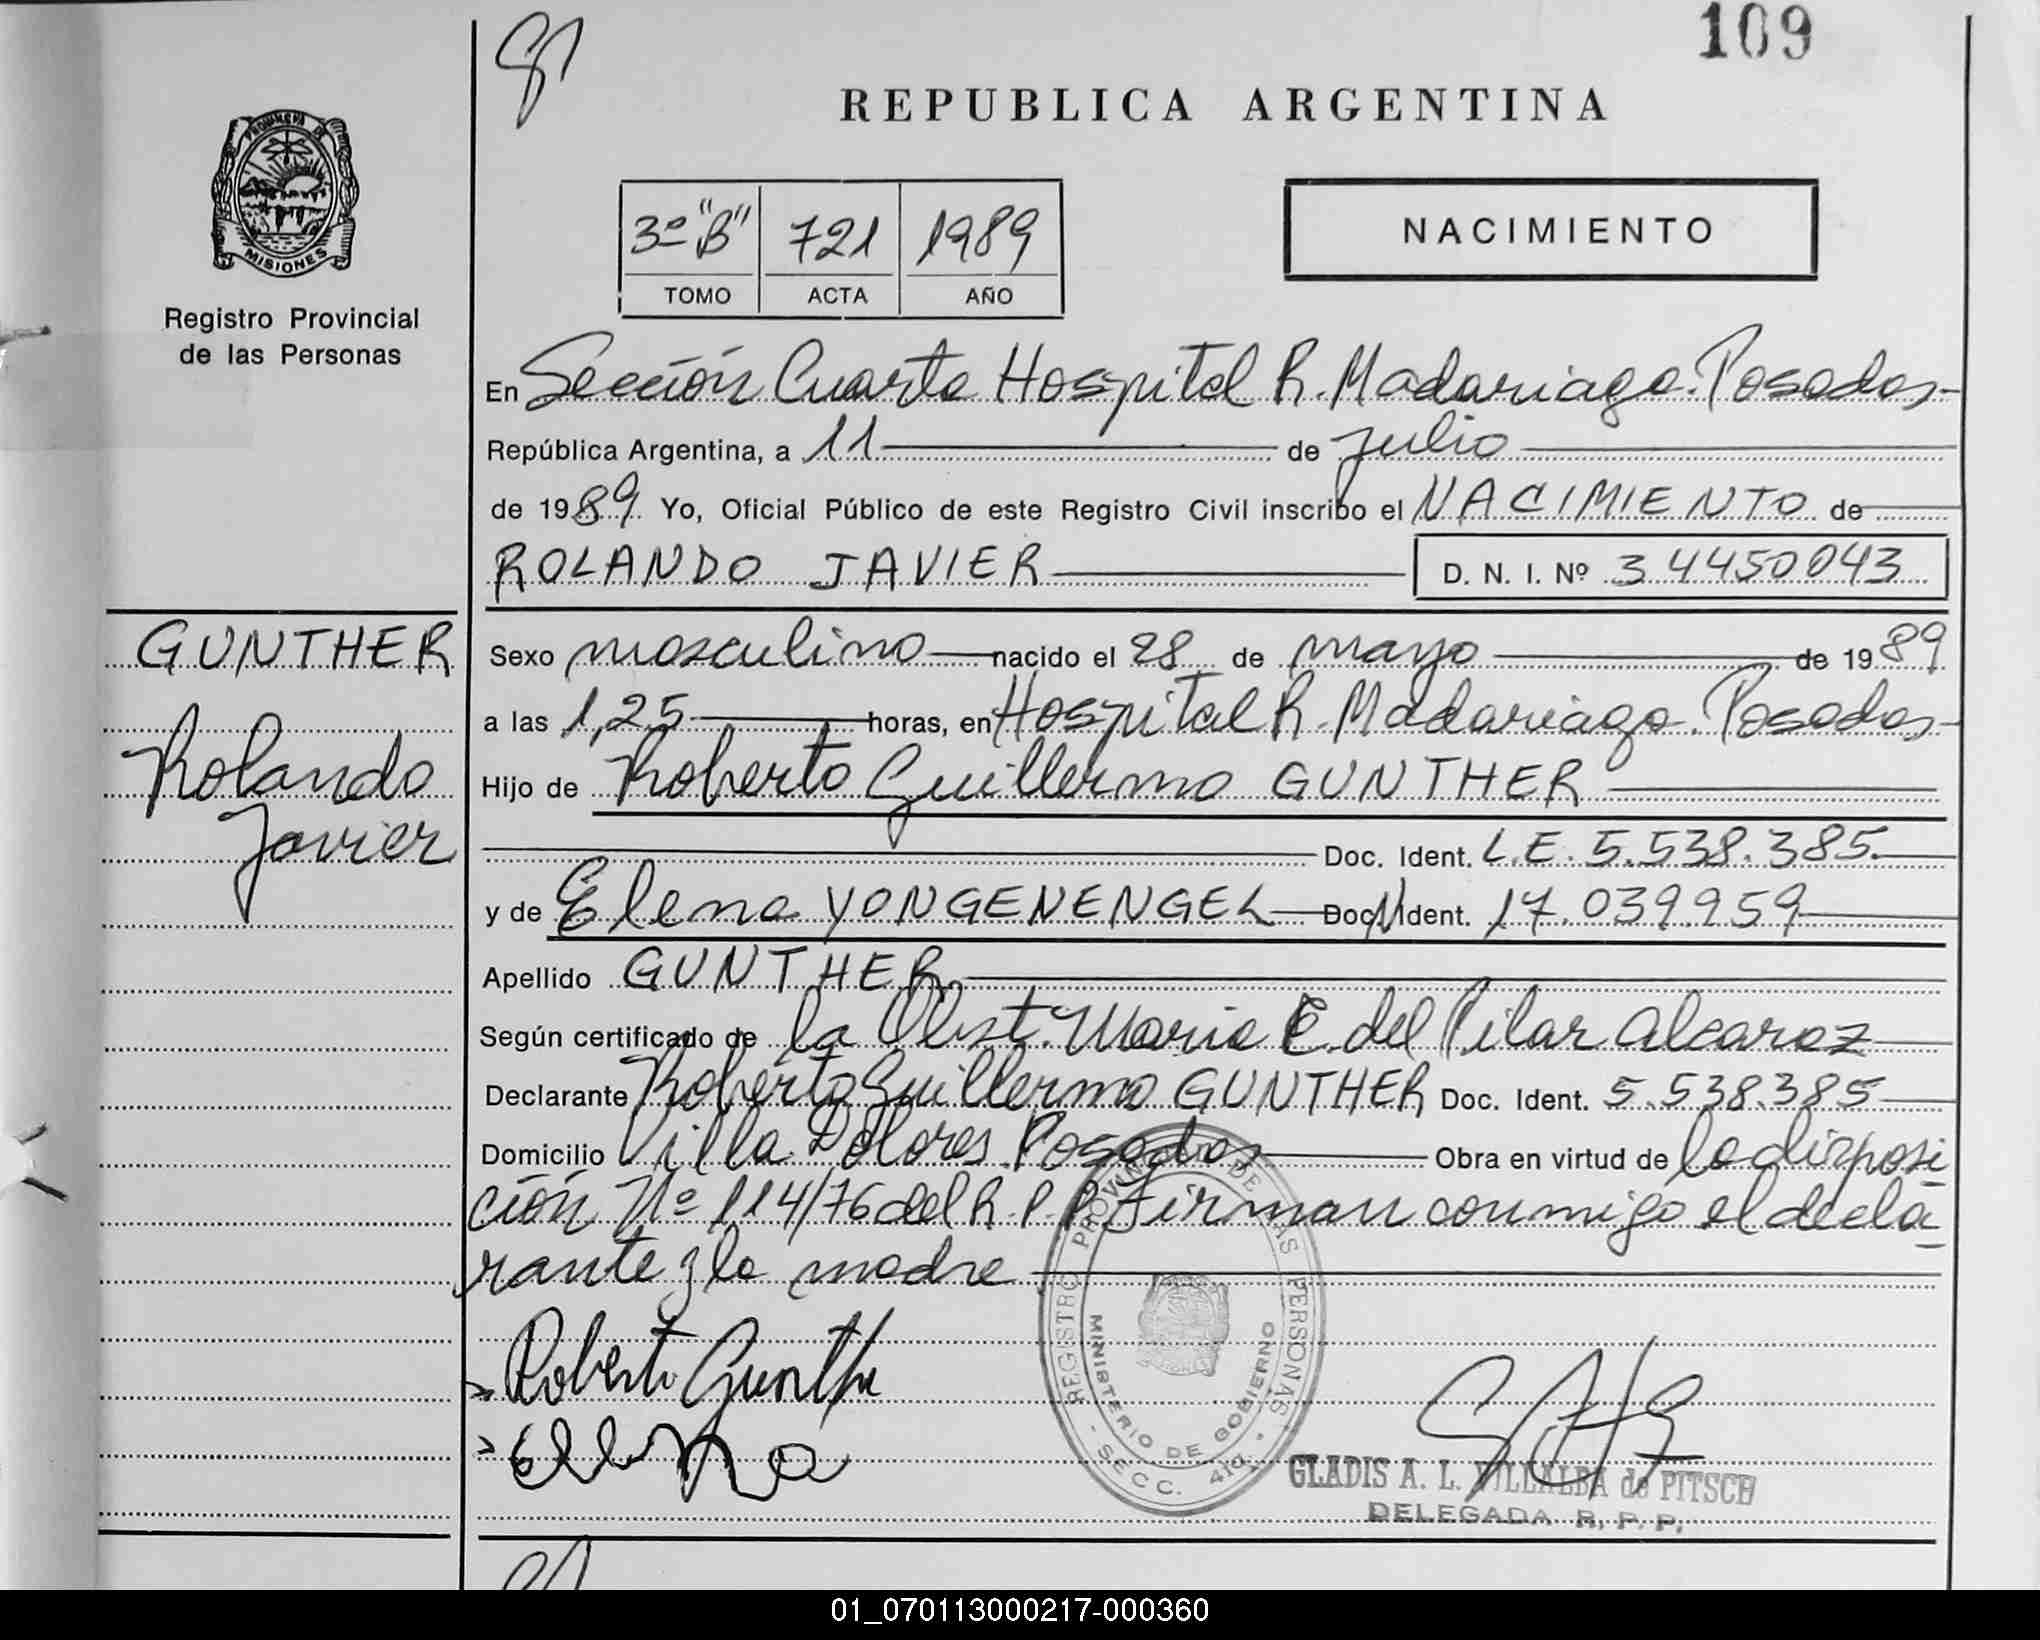 109
REPUBLICA ARGENTINA
PROVINCIA DE
MISIONES
Registro Provincial
de las Personas
3º "B" 721 1989
TOMO ACTA AÑO
NACIMIENTO
En Sección Cuarta Hospital R. Madariaga. Posadas
República Argentina, a 11 de julio
de 1989 Yo, Oficial Público de este Registro Civil inscribo el NACIMIENTO de
ROLANDO JAVIER D. N. I. Nº 34450043
GUNTHER
Rolando
Javier
Sexo masculino nacido el 28 de mayo de 1989
a las 1,25 horas, en Hospital R. Madariaga. Posadas
Hijo de Roberto Guillermo GUNTHER
Doc. Ident. L.E. 5.538.385
y de Elena YONGENENGEL Doc. Ident. 17.039959
Apellido GUNTHER
Según certificado de la Obst. Maria E. del Pilar Alcaraz
Declarante Roberto Guillermo GUNTHER Doc. Ident. 5.538.385
Domicilio Villa Dolores. Posadas Obra en virtud de la disposi
ción Nº 114/76 del R.P.P. Firman conmigo el decla
rante y la madre
Roberto Gunther
Elena
REGISTRO PROVINCIAL DE LAS PERSONAS
MINISTERIO DE GOBIERNO
- SECC. 4ta. -
GLADIS A. L. VILLALBA de PITSCH
DELEGADA R. P. P.
01_070113000217-000360